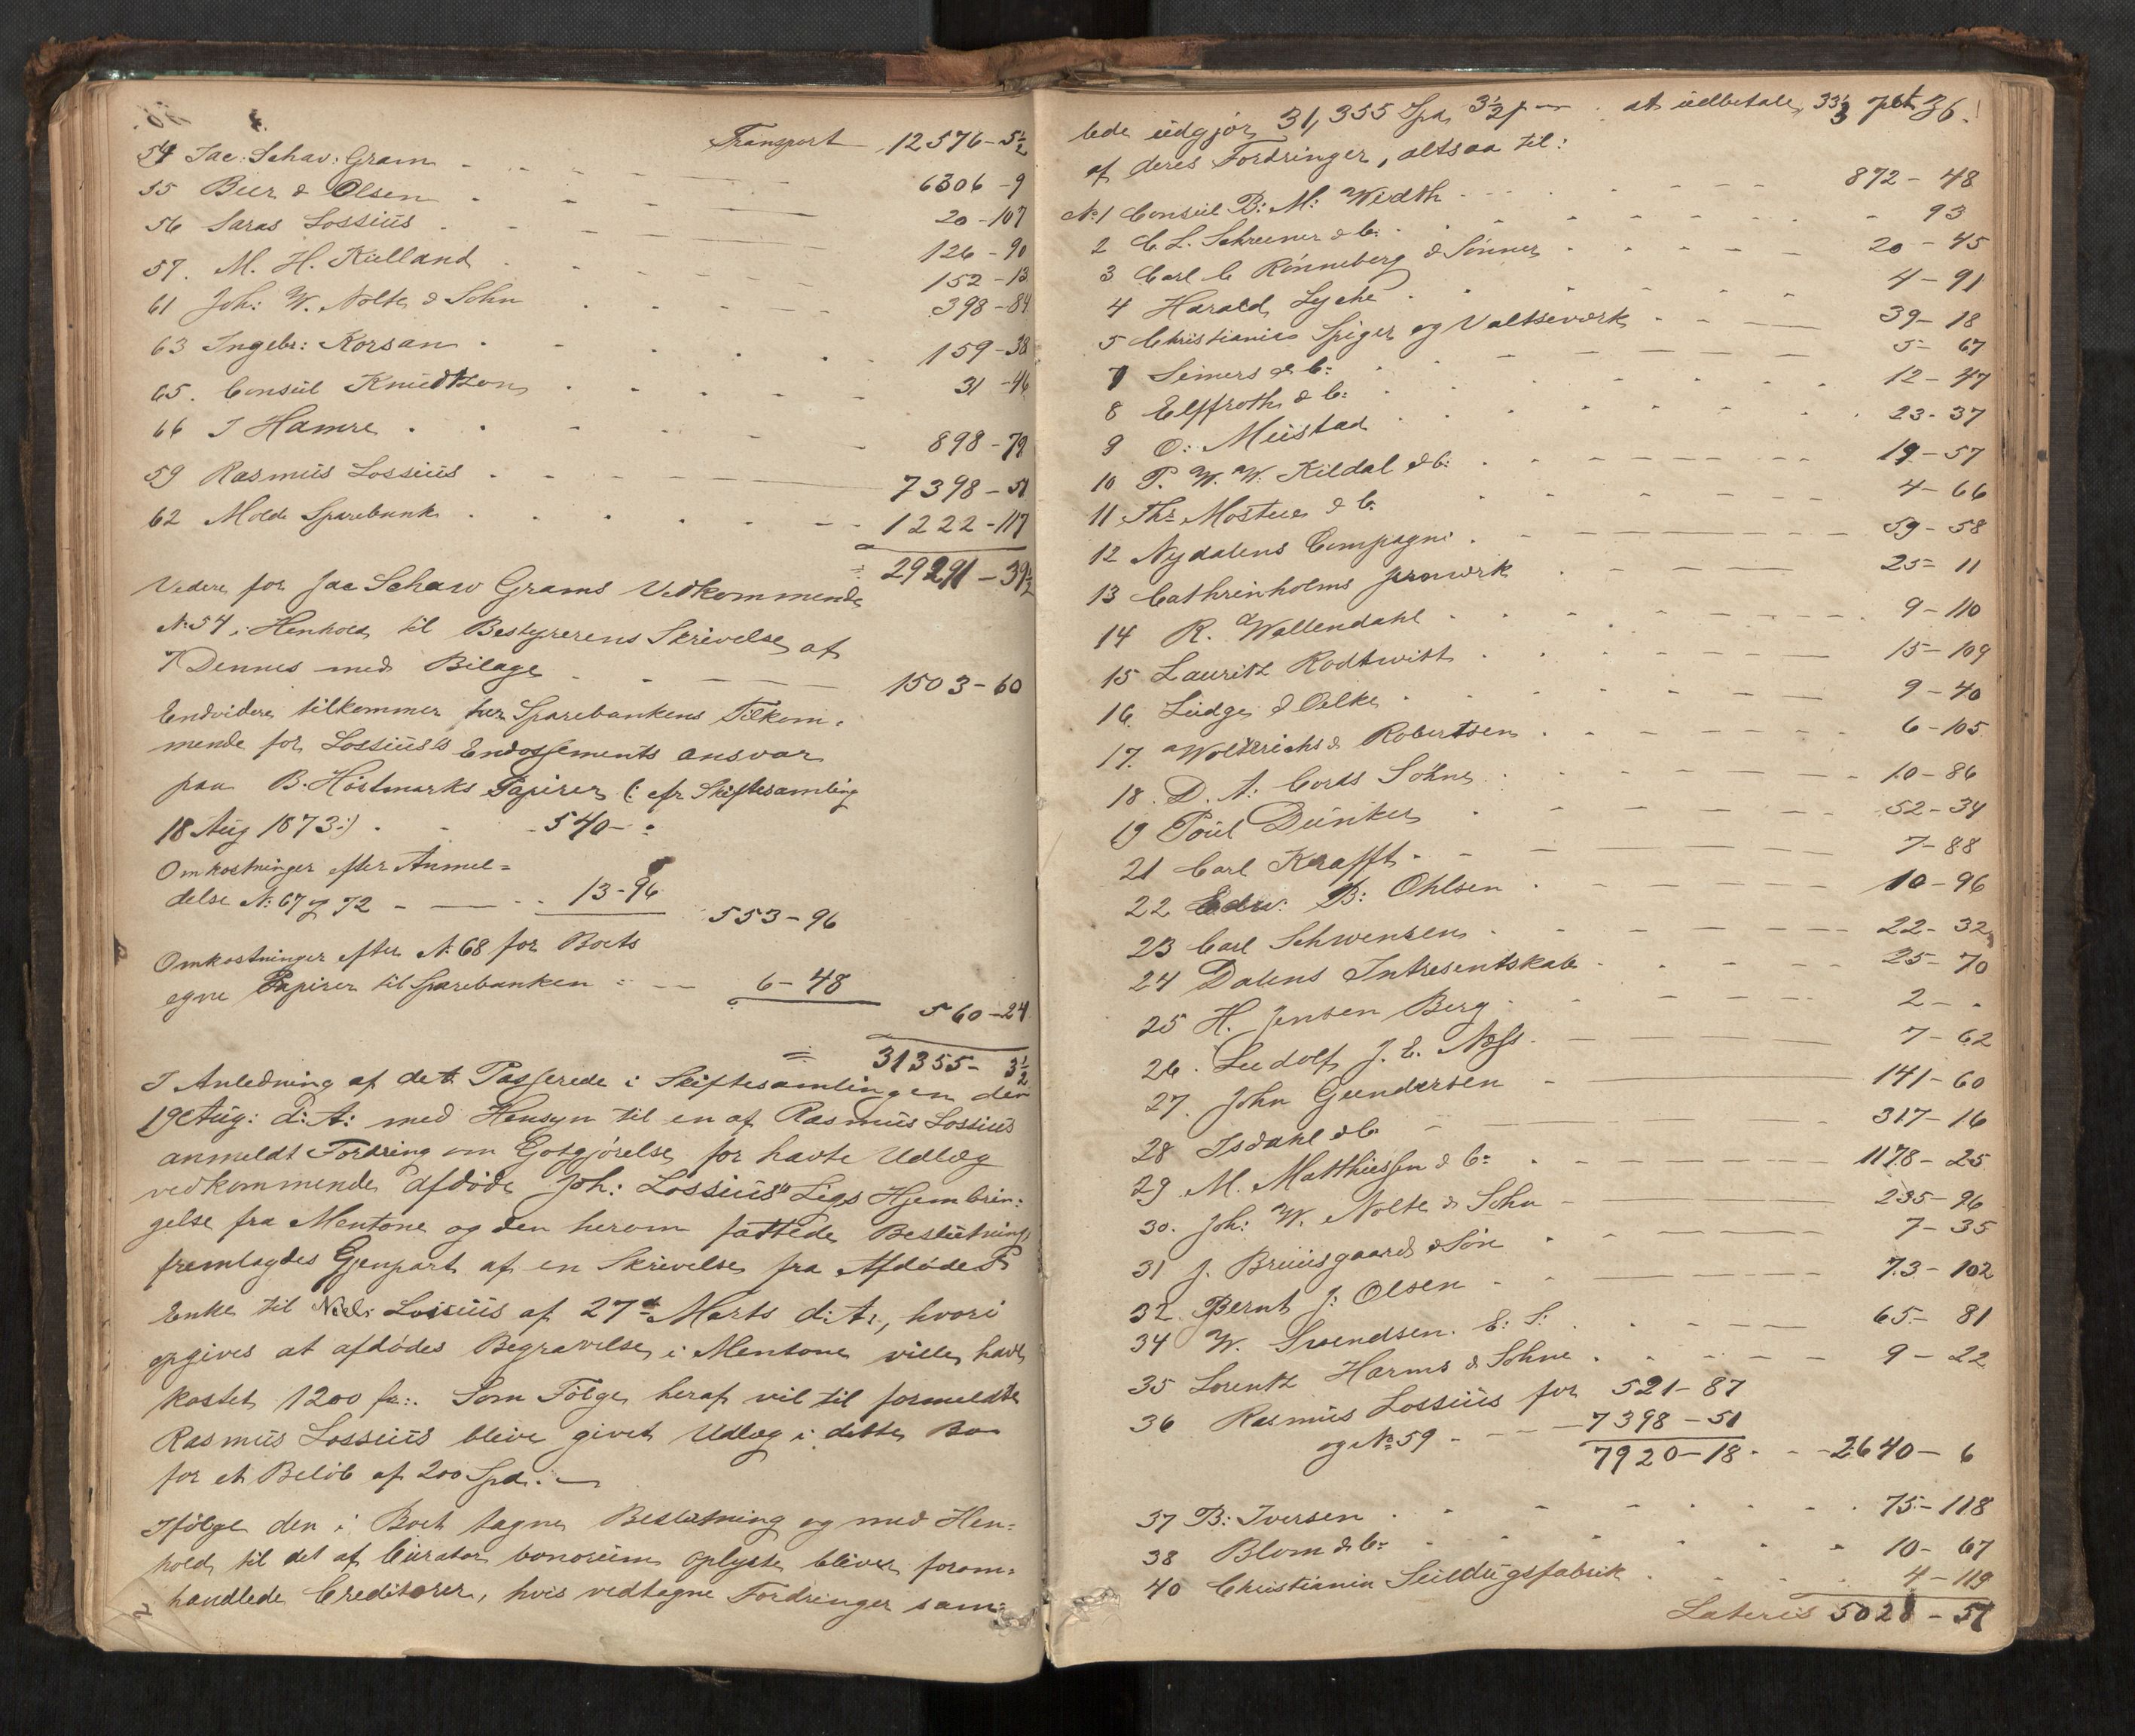 Transport 12576-5½
54 Jac: Schav: Gram 6306-9
55 Beer & Olsen 20-107
56 Saras Lossius 126-90
57. M. H. Kielland 152-13
61 Joh: W. Nolte & Sohn 398-84
63 Ingebr: Korsan 159-38
65. Consul Knudtzon 31-46
66 I Hamre 898-79
59 Rasmus Lossius 7398-51
62 Molde Sparebank 1222-117
= 29291-39½
Videre for Jac Schaw Grams Vedkommende
No 54 i Henhold til Bestyrerens Skrivelse af
7 Dennes med Bilage 1503-60
Endvidere tilkommer her Sparebankens Tilkom-
mende for Lossius's Endossements ansvar
paa B. Höstmarks Papirer (: cfr Skiftesamling
18 Aug 1873:) 540-
Omkostninger efter Anmel=
delse No: 67 og 72 13-96
553-96
Omkostninger efter No 68 for Boets
egne Papirer til Sparebanken 6-48
560-24
= 31355-3½
I Anledning af det Passerede i Skiftesamlingen den
19 Aug: d: A: med Hensyn til en af Rasmus Lossius
anmeldt Fordring om Godtgjörelse for havte Udlæg
vedkommende afdöde Joh: Lossius' Ligs Hjembrin-
gelse fra Mentone og den herom fattede Beslutning,
fremlagdes Gjenpart af en Skrivelse fra Afdödes
Enke til Nicl: Lossius af 27de Marts d: A:, hvori
opgives at afdödes Begravelse i Mentone ville have
kostet 1200 fr:. Som Fölge heraf vil til formeldte
Rasmus Lossius blive givet Udlæg i dette Bo
for et Belöb af 200 Spd.
Ifölge den i Boet tagne Beslutning og med Hen-
hold til det af Curator bonorum oplyste bliver forom-
handlede Creditorer, hvis vedtagne Fordringer sam-
36.
lede udgjör 31,355 Spd 3½ at udbetale 33⅓ pCt
af deres Fordringer, altsaa til:
No 1 Consul B: M: Width 872-48
2 C. L. Schreuner & C: 93
3 Carl C Rönneberg & Sönner 20-45
4 Harald Lyche 4-91
5 Christiania Spiger og Valtseværk 39-18
7 Seimers & C: 5-67
8 Elffroth & C: 12-47
9 O: Mustad 23-37
10 P. W. W. Kildal & C: 19-57
11 Ths Mostue & C. 4-66
12 Nydalens Compagni 59-58
13 Cathrinholms Jernværk 25-11
14 R. Wallendahl 9-110
15 Lauritz Rodtwitt 15-109
16. Lüdge & Oelke 9-40
17. Woltrichs & Robertsen 6-105
18. D. A. Cords Söhne 10-86
19 Poul Dunker 52-34
21 Carl Krafft 7-88
22 Edw: B: Ohlsen 10-96
23 Carl Schwensen 22-32
24 Dalens Intresentskab 25-70
25 H. Jensen Berg 2-
26. Ludolf J. E. Næss 7-62
27. John Gundersen 141-60
28 Isdahl & C 317-16
29 M. Matthiessen & C: 1178-25
30. Joh: W. Nolte & Sohn 235-96
31 J. Bruusgaard & Sön 7-35
32. Bernt J: Olsen 73-102
34 W. Svendsen. E: S: 65-81
35 Lorentz Harms & Sohne 9-22
36 Rasmus Lossius for 521-87
og No 59 7398-51
7920-18 2640-6
37 B: Iversen 75-118
38 Blom & C: 10-67
40 Christiania Seildugsfabrik 4-119
Lateris 5028-57